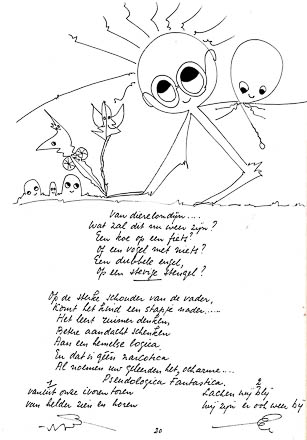 Van dierelomdijn.....
Wat zal dit nu weer zijn?
Een koe op een fiets?
Of een vogel met niets?
Een dubbele engel,
Op een stevige stengel?
Op de sterke schouder van de vader,
Komt het kind een stapje nader.....
Het leert ruimer denken,
Beter aandacht schenken
Aan een hemelse logica
En dat is géén narcotica
Al noemen uw geleerden het, ocharme....
Pseudologica Fantastica.
1
vanuit onze ivoren toren
van helder zien en horen
2
Lachen wij blij
Wij zijn er ook weer bij
20